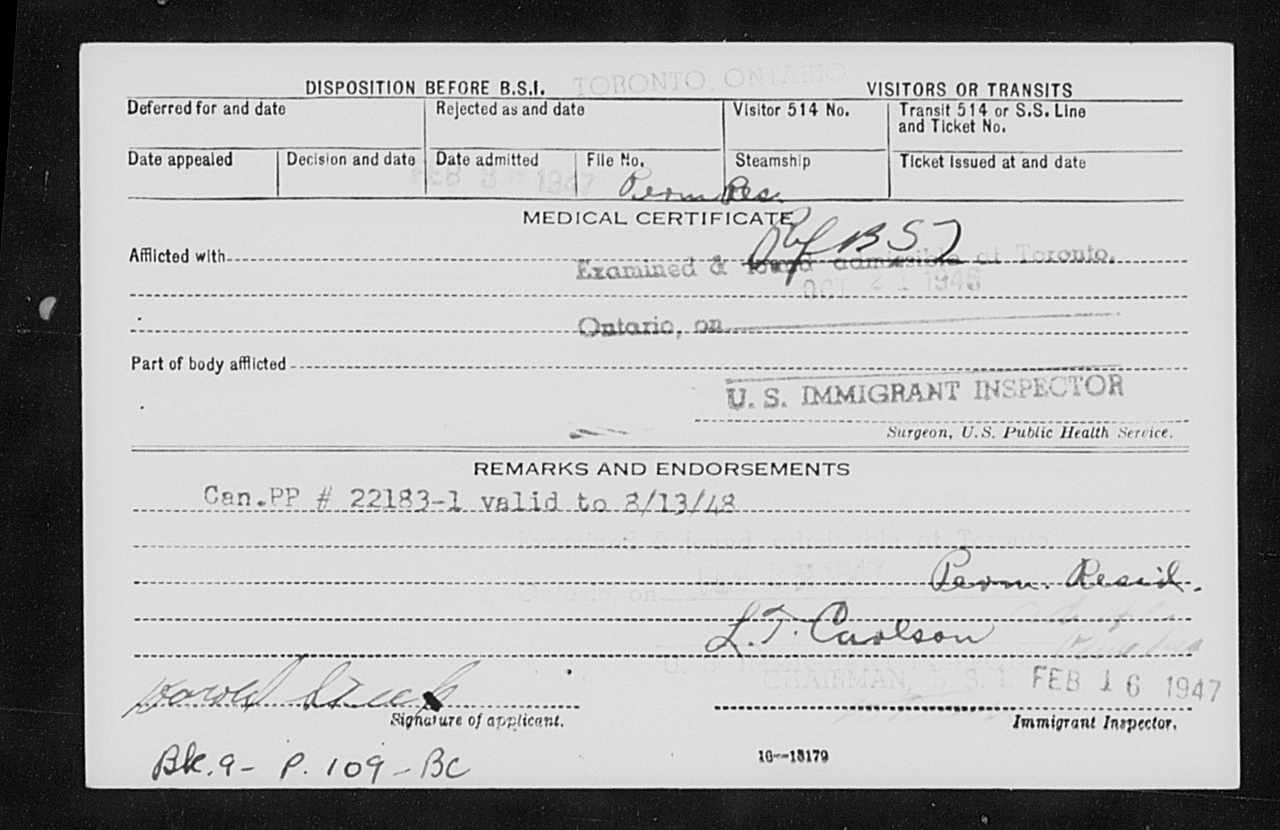 TORONTO, ONTARIO
DISPOSITION BEFORE B.S.I.
VISITORS OR TRANSITS
Deferred for and date
Rejected as and date
Visitor 514 No.
Transit 514 or S.S. Line
and Ticket No.
Date appealed
Decision and date
Date admitted
File No.
Steamship
Ticket issued at and date
FEB 1947
Perm Res.
MEDICAL CERTIFICATE
Afflicted with
Ref BSI
Examined & found admissible at Toronto,
OCT 21 1946
Ontario, on
Part of body afflicted
U. S. IMMIGRANT INSPECTOR
Surgeon, U.S. Public Health Service.
REMARKS AND ENDORSEMENTS
Can.PP # 22183-1 valid to 8/13/48
Perm. Resid.
L.T. Carlson
CHAIRMAN, B. S. I.
FEB 16 1947
Harold
Signature of applicant.
Immigrant Inspector.
16—13179
Bk.9- P.109-BC